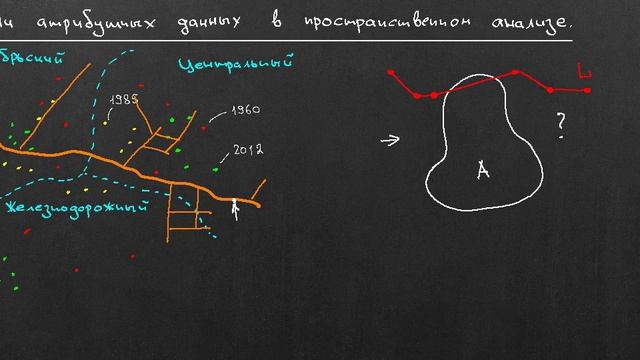 атрибутных данных в пространственном анализе.
Центральный
1985
1960
2012
Железнодорожный
L
A
?